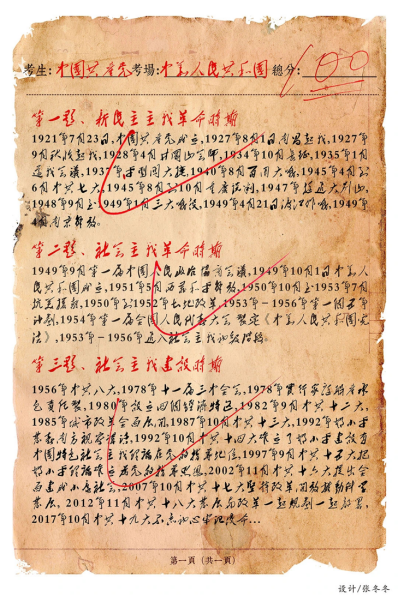 考生:中國共產党考場:中华人民共和國總分:100
第一题、新民主主义革命时期
1921年7月23日,中国共产党成立,1927年8月1日南昌起义,1927年
9月秋收起义,1928年4月井冈山会师,1934年10月长征,1935年1月
遵义会议,1937年平型关大捷,1940年8月百团大战,1945年4月至
6月中共七大,1945年8月至10月重庆谈判,1947年挺进大别山,
1948年9月至1949年1月三大战役,1949年4月21日渡江战役,1949年
4月南京解放。
第二题、社会主义革命时期
1949年9月第一届中国人民政治协商会议,1949年10月1日中华人
民共和国成立,1951年5月西藏和平解放,1950年10月至1953年7月
抗美援朝,1950年至1952年土地改革,1953年-1956年第一个五年
计划,1954年第一届全国人民代表大会 制定《中华人民共和国宪
法》,1953年-1956年进入社会主义初级阶段。
第三题、社会主义建设时期
1956年中共八大,1978年十一届三中全会,1978年实行家庭联产承
包责任制,1980年设立四个经济特区,1982年9月中共十二大,
1985年城市改革全面展开,1987年10月中共十三大,1992年邓小平
南方视察谈话,1992年10月中共十四大确立了邓小平建设有
中国特色社会主义理论在全党的指导地位,1997年9月中共十五大把
邓小平理论确立为党的指导思想,2002年11月中共十六大提出全
面建设小康社会,2007年10月中共十七大坚持改革开放推动科学
发展,2012年11月中共十八大
2017年10月中共十九大不忘初心牢记使命...
第一頁(共一頁)
设计/张冬冬